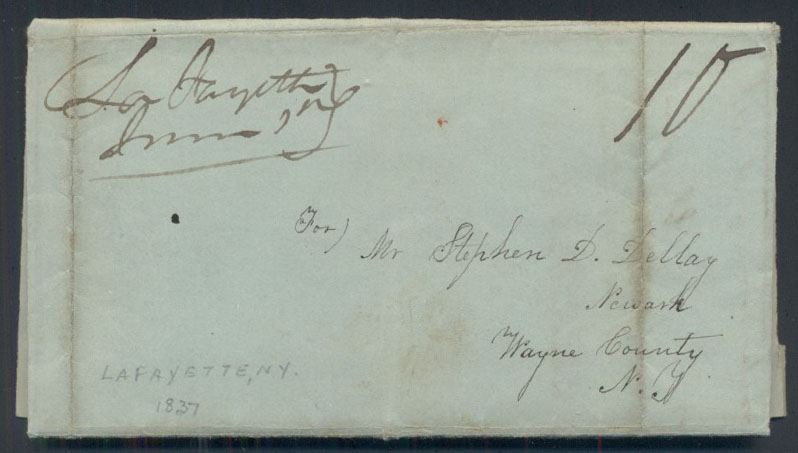 La Fayette
June
10
For)
Mr Stephen D. Dellay
Newark
Wayne County
N. Y
LAFAYETTE, NY.
1837